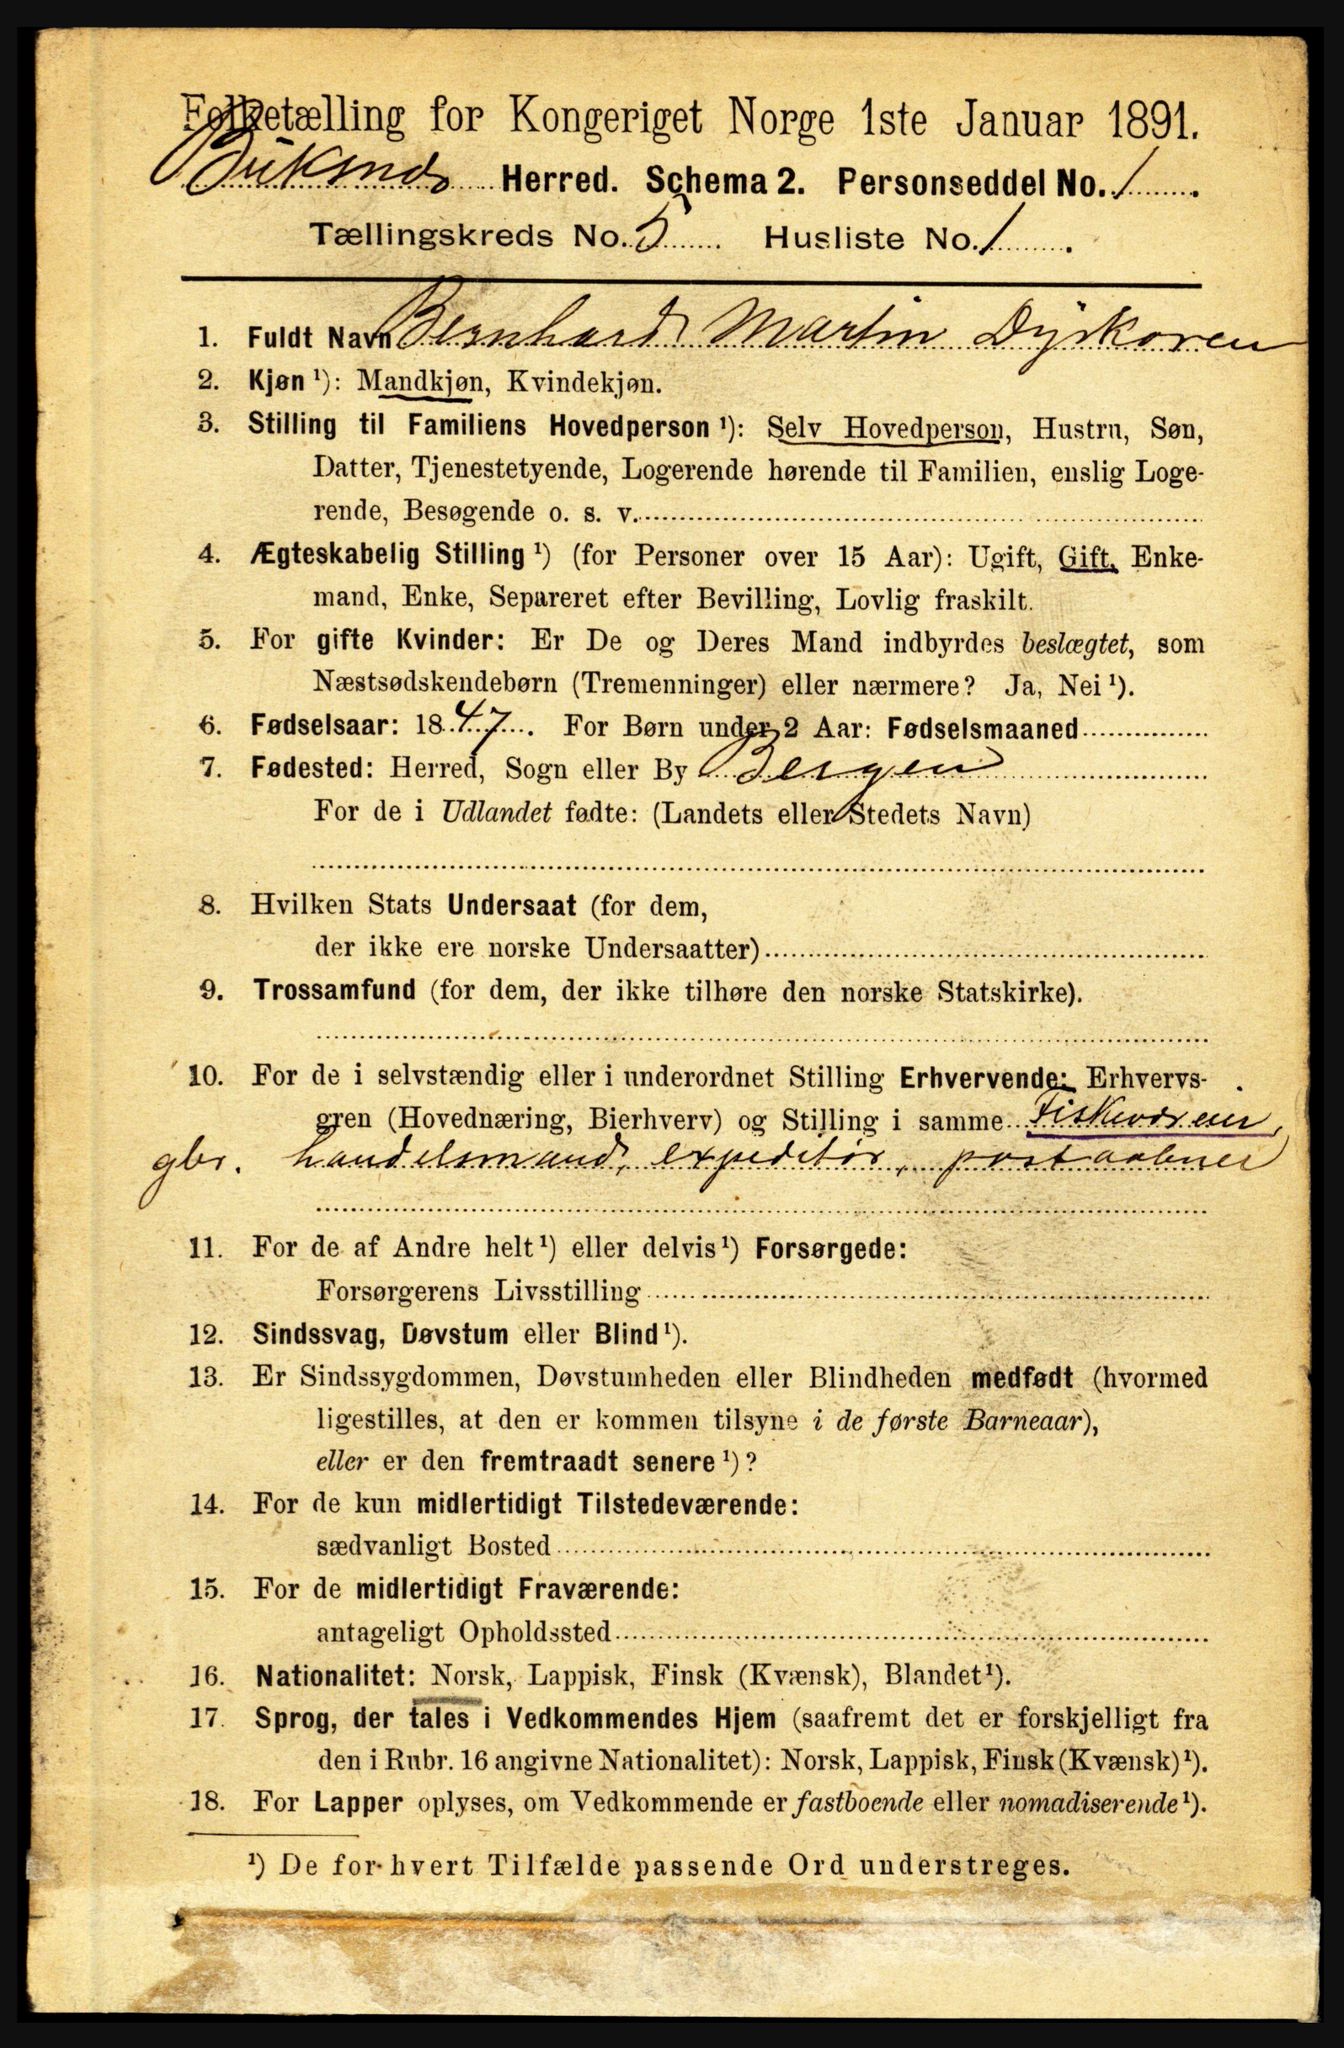 Folketælling for Kongeriget Norge 1ste Januar 1891.
Buksnes Herred. Schema 2. Personseddel No. 1.
Tællingskreds No. 5. Husliste No. 1.
1. Fuldt Navn Bernhard Martin Dyskoren
2. Kjøn ¹): Mandkjøn, Kvindekjøn.
3. Stilling til Familiens Hovedperson ¹): Selv Hovedperson, Hustru, Søn,
Datter, Tjenestetyende, Logerende hørende til Familien, enslig Loge-
rende, Besøgende o. s. v.
4. Ægteskabelig Stilling ¹) (for Personer over 15 Aar): Ugift, Gift, Enke-
mand, Enke, Separeret efter Bevilling, Lovlig fraskilt.
5. For gifte Kvinder: Er De og Deres Mand indbyrdes beslægtet, som
Næstsødskendebørn (Tremenninger) eller nærmere? Ja, Nei ¹).
6. Fødselsaar: 1847. For Børn under 2 Aar: Fødselsmaaned
7. Fødested: Herred, Sogn eller By Bergen
For de i Udlandet fødte: (Landets eller Stedets Navn)
8. Hvilken Stats Undersaat (for dem,
der ikke ere norske Undersaatter)
9. Trossamfund (for dem, der ikke tilhøre den norske Statskirke).
10. For de i selvstændig eller i underordnet Stilling Erhvervende: Erhvervs-
gren (Hovednæring, Bierhverv) og Stilling i samme Fiskeværeier,
gbr. handelsmand, expeditør, postaabner
11. For de af Andre helt ¹) eller delvis ¹) Forsørgede:
Forsørgerens Livsstilling
12. Sindssvag, Døvstum eller Blind ¹).
13. Er Sindssygdommen, Døvstumheden eller Blindheden medfødt (hvormed
ligestilles, at den er kommen tilsyne i de første Barneaar),
eller er den fremtraadt senere ¹)?
14. For de kun midlertidigt Tilstedeværende:
sædvanligt Bosted
15. For de midlertidigt Fraværende:
antageligt Opholdssted
16. Nationalitet: Norsk, Lappisk, Finsk (Kvænsk), Blandet ¹).
17. Sprog, der tales i Vedkommendes Hjem (saafremt det er forskjelligt fra
den i Rubr. 16 angivne Nationalitet): Norsk, Lappisk, Finsk (Kvænsk) ¹).
18. For Lapper oplyses, om Vedkommende er fastboende eller nomadiserende ¹).
¹) De for hvert Tilfælde passende Ord understreges.